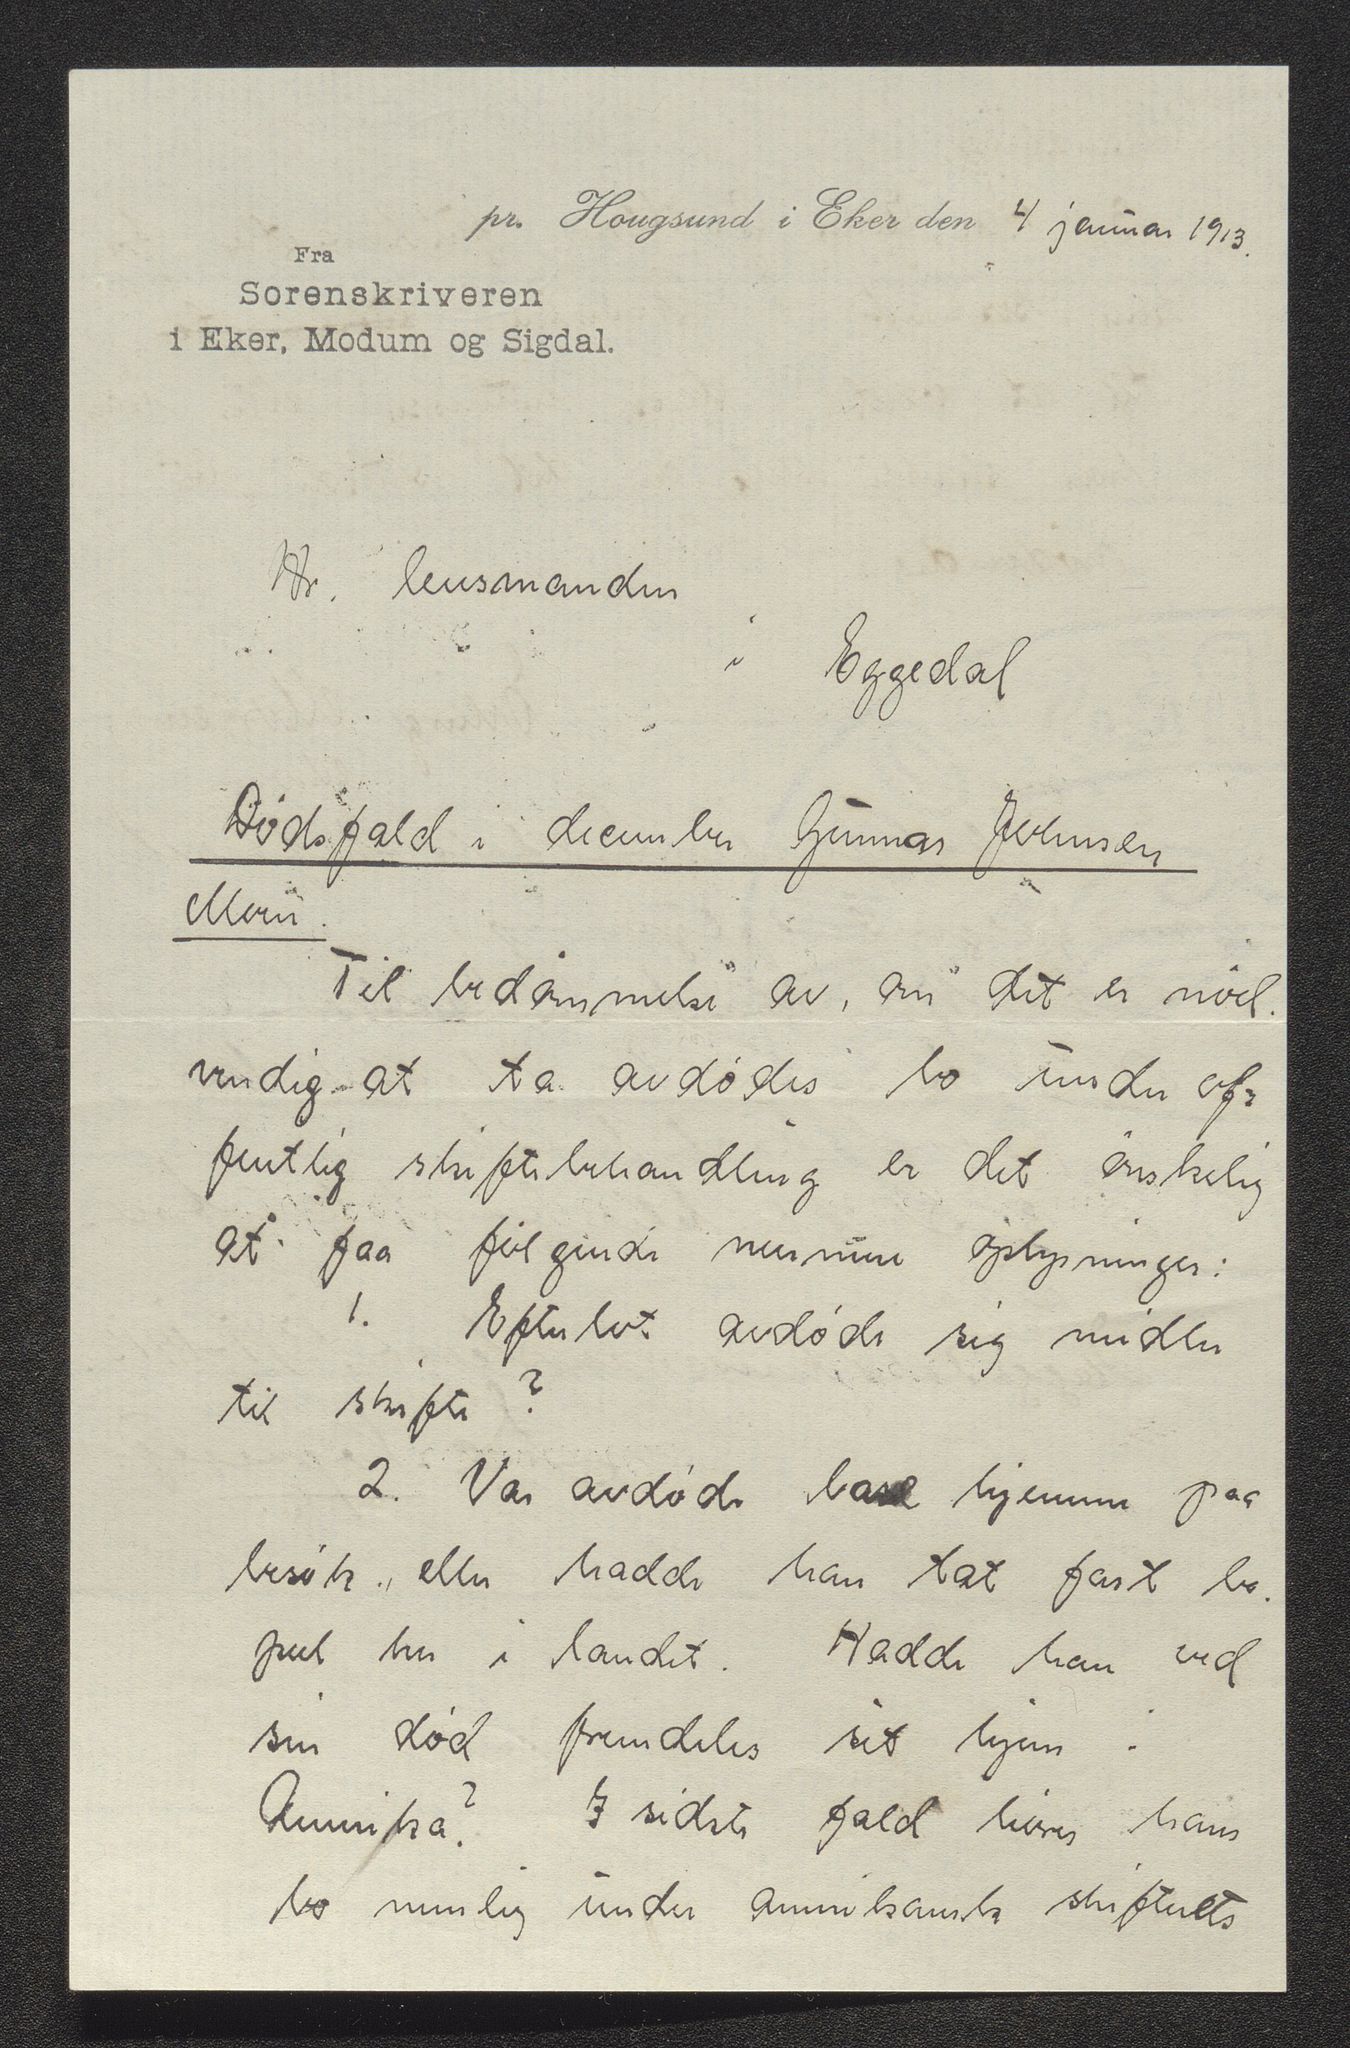 pr. Hougsund i Eker den 4 januar 1913.
Fra
Sorenskriveren
i Eker, Modum og Sigdal.
Hr. lensmanden
i Eggedal
Dödsfald i december Gunnar Johnsen
Moen.
Til bedømmelse av, om det er nød-
vendig at ta avdødes bo under of-
fentlig skiftebehandling er det ønskelig
at faa følgende nærmere oplysninger:
1. Efterlot avdøde sig midler
til skifte?
2. Var avdøde bare hjemme paa
besøk, eller hadde han tat fast bo-
pæl her i landet. Hadde han ved
sin død fremdeles sit hjem i
Amerika? I sidste fald hører hans
bo nemlig under amerikansk skifterets